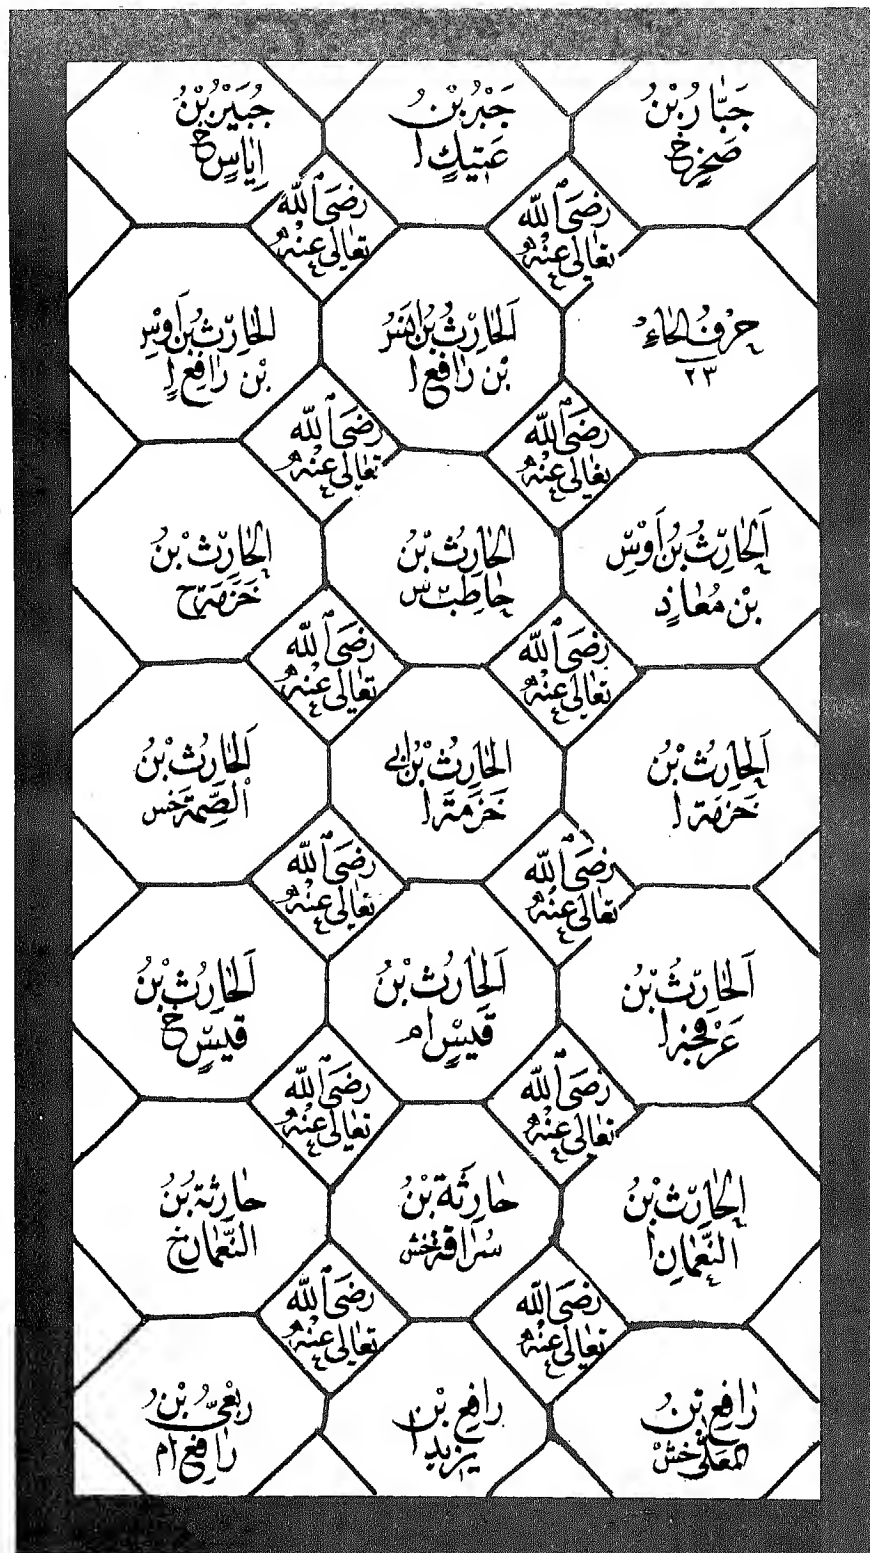 جَبَّارُ بْنُ
صَخْرٍ خ
جَبْرُ بْنُ
عَتِيكٍ ا
جُبَيْرُ بْنُ
إِيَاسٍ خ
رَضِيَ اللّٰه
تَعَالٰى عَنْهُ
رَضِيَ اللّٰه
تَعَالٰى عَنْهُ
حَرْفُ الْحَاءِ
٢٣
اَلْحَارِثُ بْنُ اَنَسِ
بْنِ رَافِعٍ ا
اَلْحَارِثُ بْنُ اَوْسِ
بْنِ رَافِعٍ ا
رَضِيَ اللّٰه
تَعَالٰى عَنْهُ
رَضِيَ اللّٰه
تَعَالٰى عَنْهُ
اَلْحَارِثُ بْنُ اَوْسِ
بْنِ مُعَاذٍ
اَلْحَارِثُ بْنُ
حَاطِبٍ س
اَلْحَارِثُ بْنُ
خَزَمَةَ ح
رَضِيَ اللّٰه
تَعَالٰى عَنْهُ
رَضِيَ اللّٰه
تَعَالٰى عَنْهُ
اَلْحَارِثُ بْنُ
خَزَمَةَ ا
اَلْحَارِثُ بْنُ اَبِي
خَزَمَةَ ا
اَلْحَارِثُ بْنُ
الصِّمَّةِ خس
رَضِيَ اللّٰه
تَعَالٰى عَنْهُ
رَضِيَ اللّٰه
تَعَالٰى عَنْهُ
اَلْحَارِثُ بْنُ
عَرْفَجَةَ ا
اَلْحَارِثُ بْنُ
قَيْسٍ ام
اَلْحَارِثُ بْنُ
قَيْسٍ خ
رَضِيَ اللّٰه
تَعَالٰى عَنْهُ
رَضِيَ اللّٰه
تَعَالٰى عَنْهُ
اَلْحَارِثُ بْنُ
النُّعْمَانِ ا
حَارِثَةُ بْنُ
سُرَاقَةَ خش
حَارِثَةُ بْنُ
النُّعْمَانِ خ
رَضِيَ اللّٰه
تَعَالٰى عَنْهُ
رَضِيَ اللّٰه
تَعَالٰى عَنْهُ
رَافِعُ بْنُ
الْمُعَلّٰى خش
رَافِعُ بْنُ
يَزِيدَ ا
رِبْعِيُّ بْنُ
رَافِعٍ ام